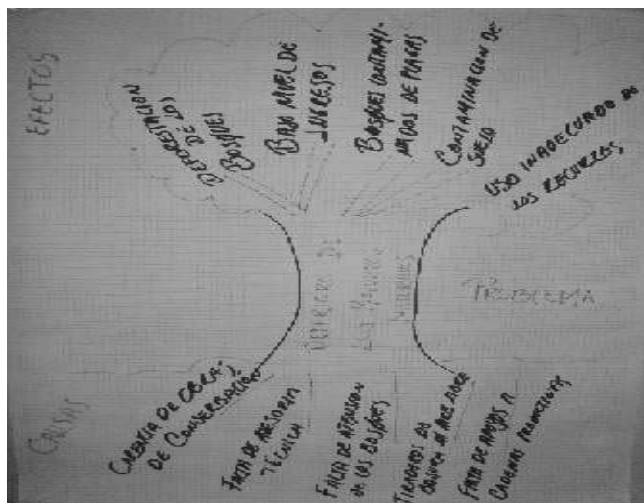 EFECTOS
DEFORESTACION
DE LOS
BOSQUES
BAJO NIVEL DE
INGRESOS
BOSQUES CONTAMI-
NADOS DE PLAGAS
CONTAMINACION DE
SUELO
USO INADECUADO DE
LOS RECURSOS
DETERIORO DE
LOS RECURSOS
NATURALES
PROBLEMA
CAUSAS
CARENCIA DE OBRAS
DE CONSERVACIÓN
FALTA DE ASESORIA
TÉCNICA
FALTA DE ATENCION
DE LOS BOSQUES
FALTA DE APOYOS A
CADENAS PRODUCTIVAS